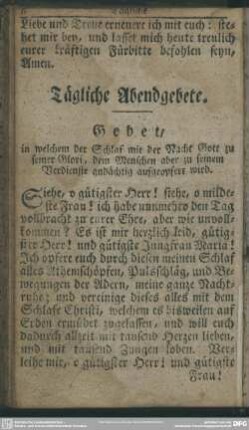 6 Tägliche
Liebe und Treue erneuere ich mit euch: ste-
het mir bey, und lasset mich heute treulich
eurer kräftigen Fürbitte befohlen seyn,
Amen.
Tägliche Abendgebete.
Gebet,
in welchem der Schlaf mit der Nacht Gott zu
seiner Glori, dem Menschen aber zu seinem
Verdienste andächtig aufgeopfert wird.
Siehe, o gütigster Herr! siehe, o milde-
ste Frau! ich habe nunmehro den Tag
vollbracht zu eurer Ehre, aber wie unvoll-
kommen? Es ist mir herzlich leid, gütig-
ster Herr! und gütigste Jungfrau Maria!
Ich opfere euch durch diesen meinen Schlaf
alles Athemschöpfen, Pulsschläg, und Be-
wegungen der Adern, meine ganze Nacht-
ruhe; und vereinige dieses alles mit dem
Schlafe Christi, welchem es bisweilen auf
Erden ermüdet zugelassen, und will euch
dadurch allzeit mit tausend Herzen lieben,
und mit tausend Zungen loben. Ver-
leihe mir, o gütigster Herr! und gütigste
Frau!